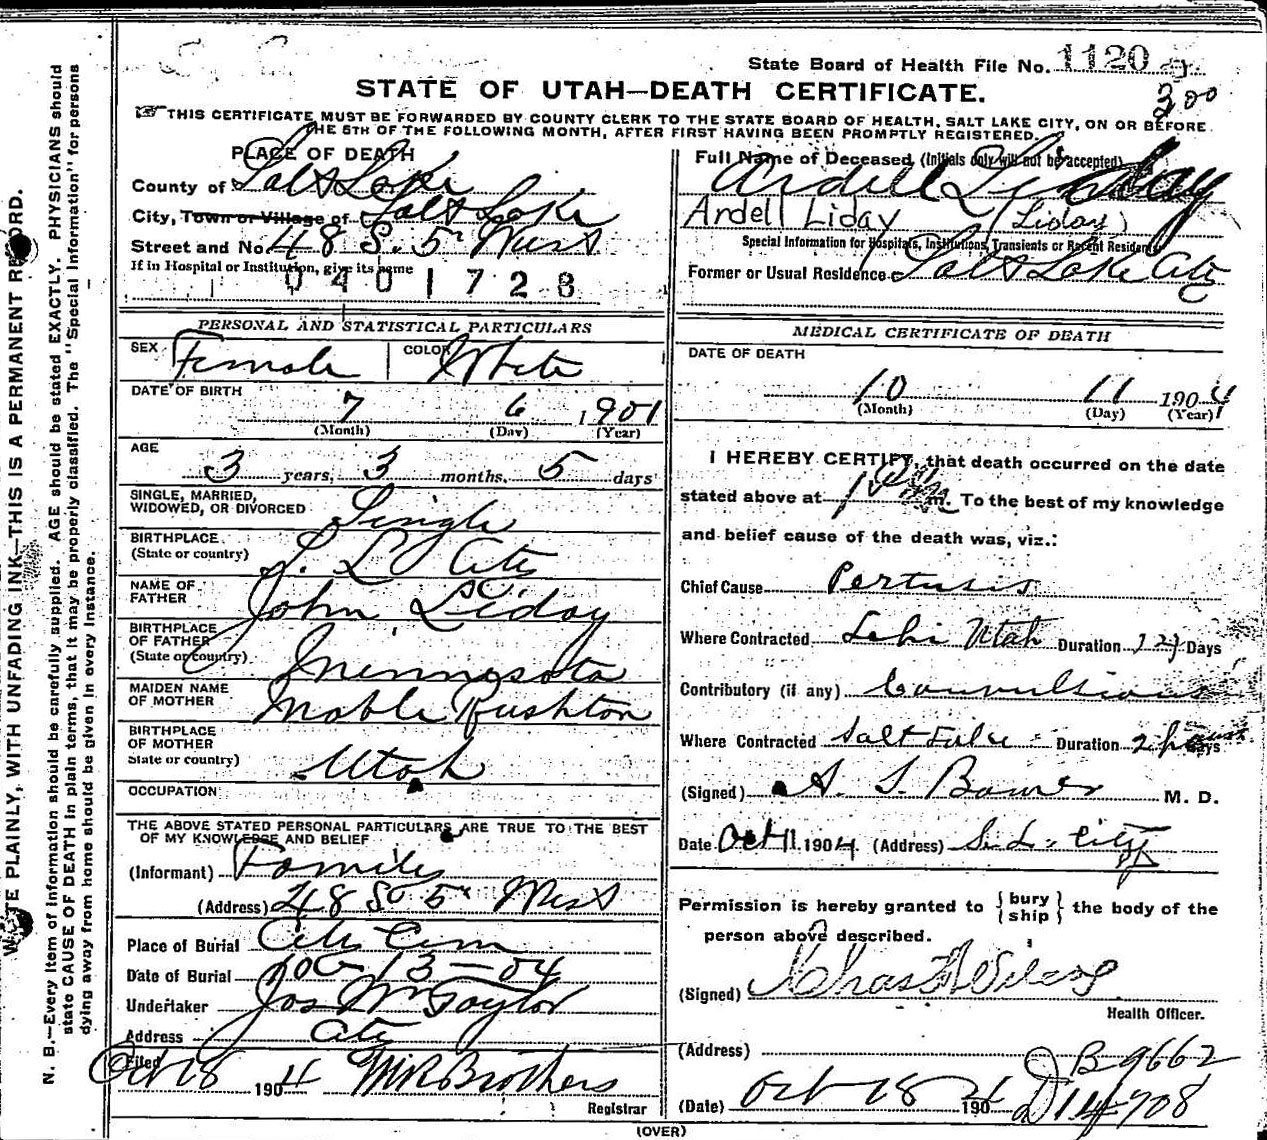 State Board of Health File No. 1120
300
STATE OF UTAH—DEATH CERTIFICATE.
THIS CERTIFICATE MUST BE FORWARDED BY COUNTY CLERK TO THE STATE BOARD OF HEALTH, SALT LAKE CITY, ON OR BEFORE
THE 5TH OF THE FOLLOWING MONTH, AFTER FIRST HAVING BEEN PROMPTLY REGISTERED.
PLACE OF DEATH
County of Salt Lake
City, Town or Village of Salt Lake
Street and No. 48 S. 5" West
If in Hospital or Institution, give its name
0401728
Full Name of Deceased, (Initials only will not be accepted)
Ardell Lindsay
Ardell Liday (Liday)
Special Information for Hospitals, Institutions, Transients or Recent Residents
Former or Usual Residence Salt Lake City
PERSONAL AND STATISTICAL PARTICULARS
SEX Female COLOR White
DATE OF BIRTH
7 6 1901
(Month) (Day) (Year)
AGE
3 years, 3 months, 5 days
SINGLE, MARRIED,
WIDOWED, OR DIVORCED Single
BIRTHPLACE
(State or country) S. L. City
NAME OF
FATHER John Liday
BIRTHPLACE
OF FATHER
(State or country) Minnesota
MAIDEN NAME
OF MOTHER Mable Rushton
BIRTHPLACE
OF MOTHER
State or country) Utah
OCCUPATION
THE ABOVE STATED PERSONAL PARTICULARS ARE TRUE TO THE BEST
OF MY KNOWLEDGE AND BELIEF
(Informant) Family
(Address) 48 So 5" West
Place of Burial City Cem
Date of Burial 10 13-04
Undertaker Jos Wm Taylor
Address City
Filed Oct 18 1904 MR Brothers
Registrar
MEDICAL CERTIFICATE OF DEATH
DATE OF DEATH
10 11 1904
(Month) (Day) (Year)
I HEREBY CERTIFY, that death occurred on the date
stated above at 1 P m. To the best of my knowledge
and belief cause of the death was, viz.:
Chief Cause Pertusis
Where Contracted Lehi Utah Duration Days
Contributory (if any) Convultions
Where Contracted Salt Lake Duration 2 hours
(Signed) A. S. Bower M. D.
Date Oct 11 1904. (Address) S. L. City
Permission is hereby granted to {bury
ship} the body of the
person above described.
(Signed) Chas
Health Officer.
(Address)
B 9662
(Date) Oct 18 1904 D 14708
(OVER)
WRITE PLAINLY, WITH UNFADING INK—THIS IS A PERMANENT RECORD.
N. B.—Every item of information should be carefully supplied. AGE should be stated EXACTLY. PHYSICIANS should
state CAUSE OF DEATH in plain terms, that it may be properly classified. The "Special Information" for persons
dying away from home should be given in every instance.